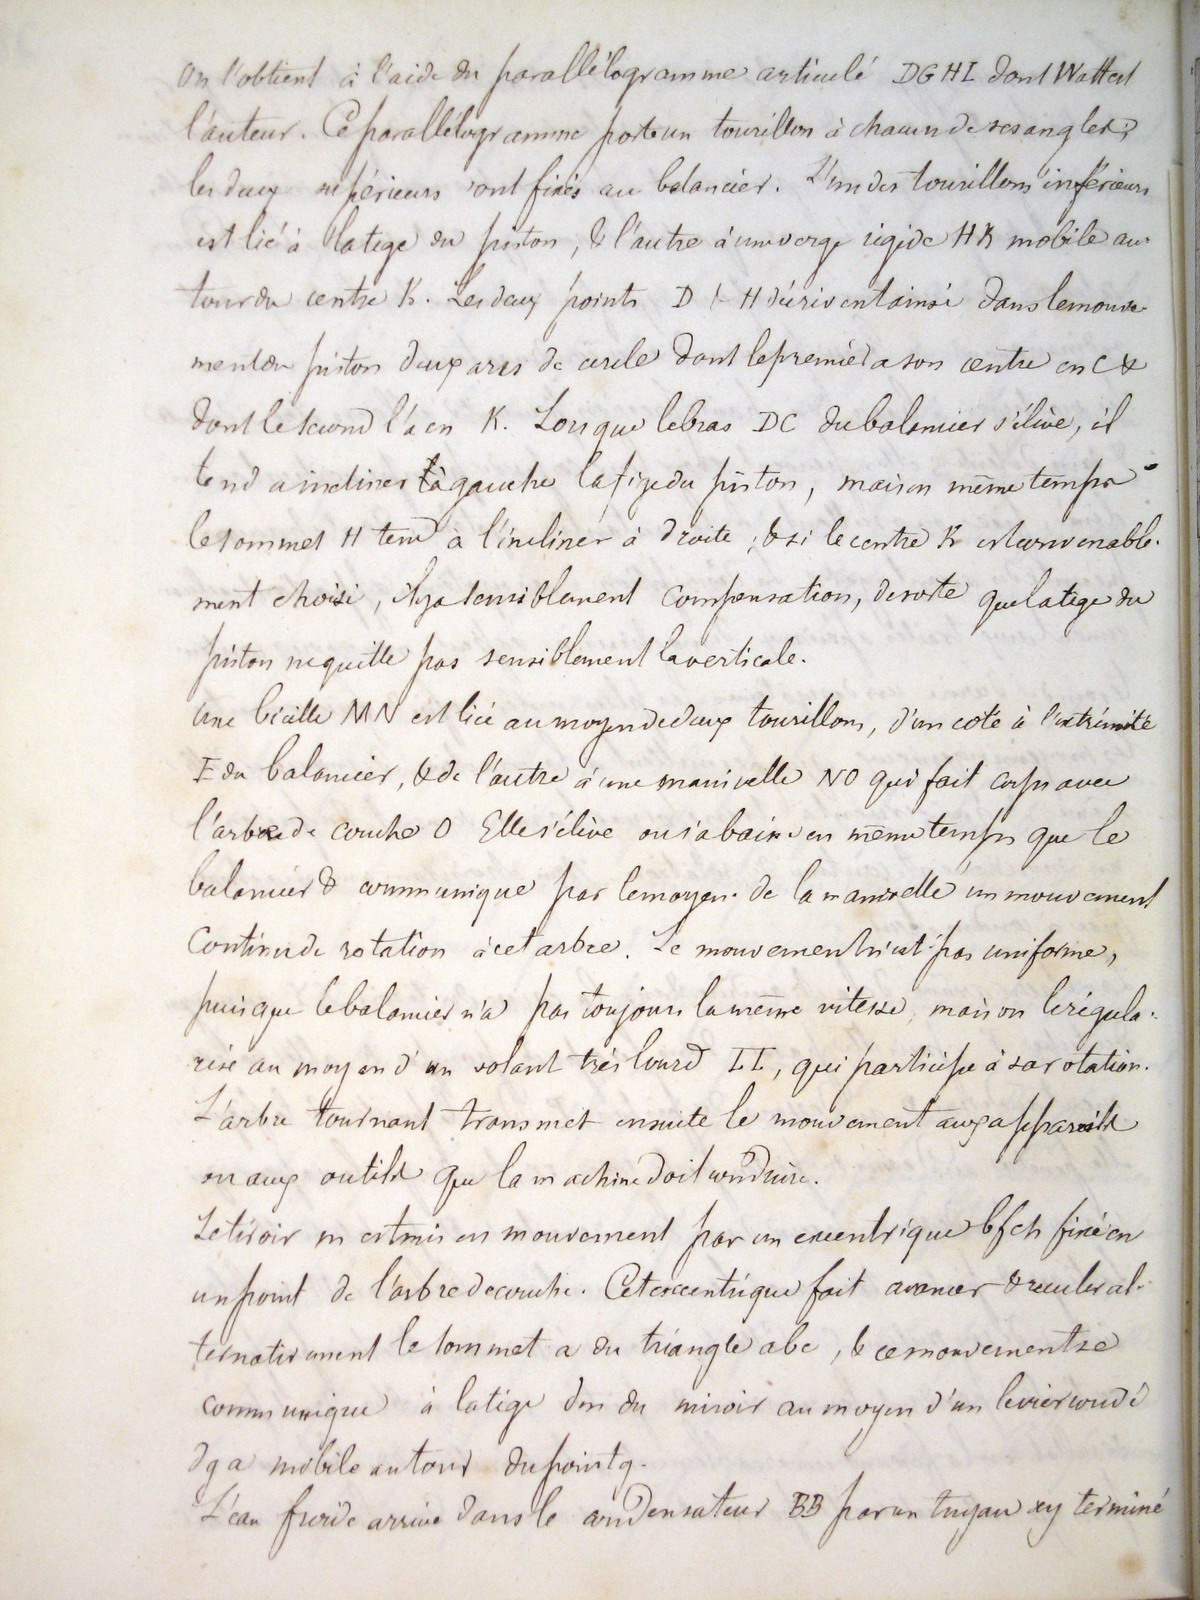 On l'obtient à l'aide du parallélogramme articulé DGHI dont Watt est
l'auteur. Ce parallélogramme porte un tourillon à chacun de ses angles;
les deux supérieurs sont fixés au balancier. L'un des tourillons inférieurs
est lié à la tige du piston, & l'autre à une verge rigide HK mobile au-
tour du centre K. Les deux points D & H décrivent ainsi dans le mouve-
ment du piston deux arcs de cercle dont le premier a son centre en C &
dont le second l'a en K. Lorsque le bras DC du balancier s'élève, il
tend a incliner à gauche la tige du piston, mais en même temps
le sommet H tend à l'incliner à droite, & si le centre K est convenable-
ment choisi, il y a sensiblement compensation, de sorte que la tige du
piston ne quitte pas sensiblement la verticale.
Une bielle MN est liée au moyen de deux tourillons, d'un coté à l'extrémité
E du balancier, & de l'autre à une manivelle NO qui fait corps avec
l'arbre de couche O Elle s'élève ou s'abaisse en même temps que le
balancier & communique par le moyen de la manivelle un mouvement
continu de rotation à cet arbre. Le mouvement n'est pas uniforme,
puisque le balancier n'a pas toujours la même vitesse, mais on le régula-
rise au moyen d'un volant très lourd II, qui participe à sa rotation.
L'arbre tournant transmet ensuite le mouvement aux appareils
ou aux outils que la machine doit conduire.
Le tiroir m est mis en mouvement par un excentrique bfch fixé en
un point de l'arbre de couche. Cet excentrique fait avancer & reculer al-
ternativement le sommet a du triangle abc, & ce mouvement se
communique à la tige dm du miroir au moyen d'un levier coudé
dga mobile autour du point g.
L'eau froide arrive dans le condensateur BB par un tuyau xy terminé